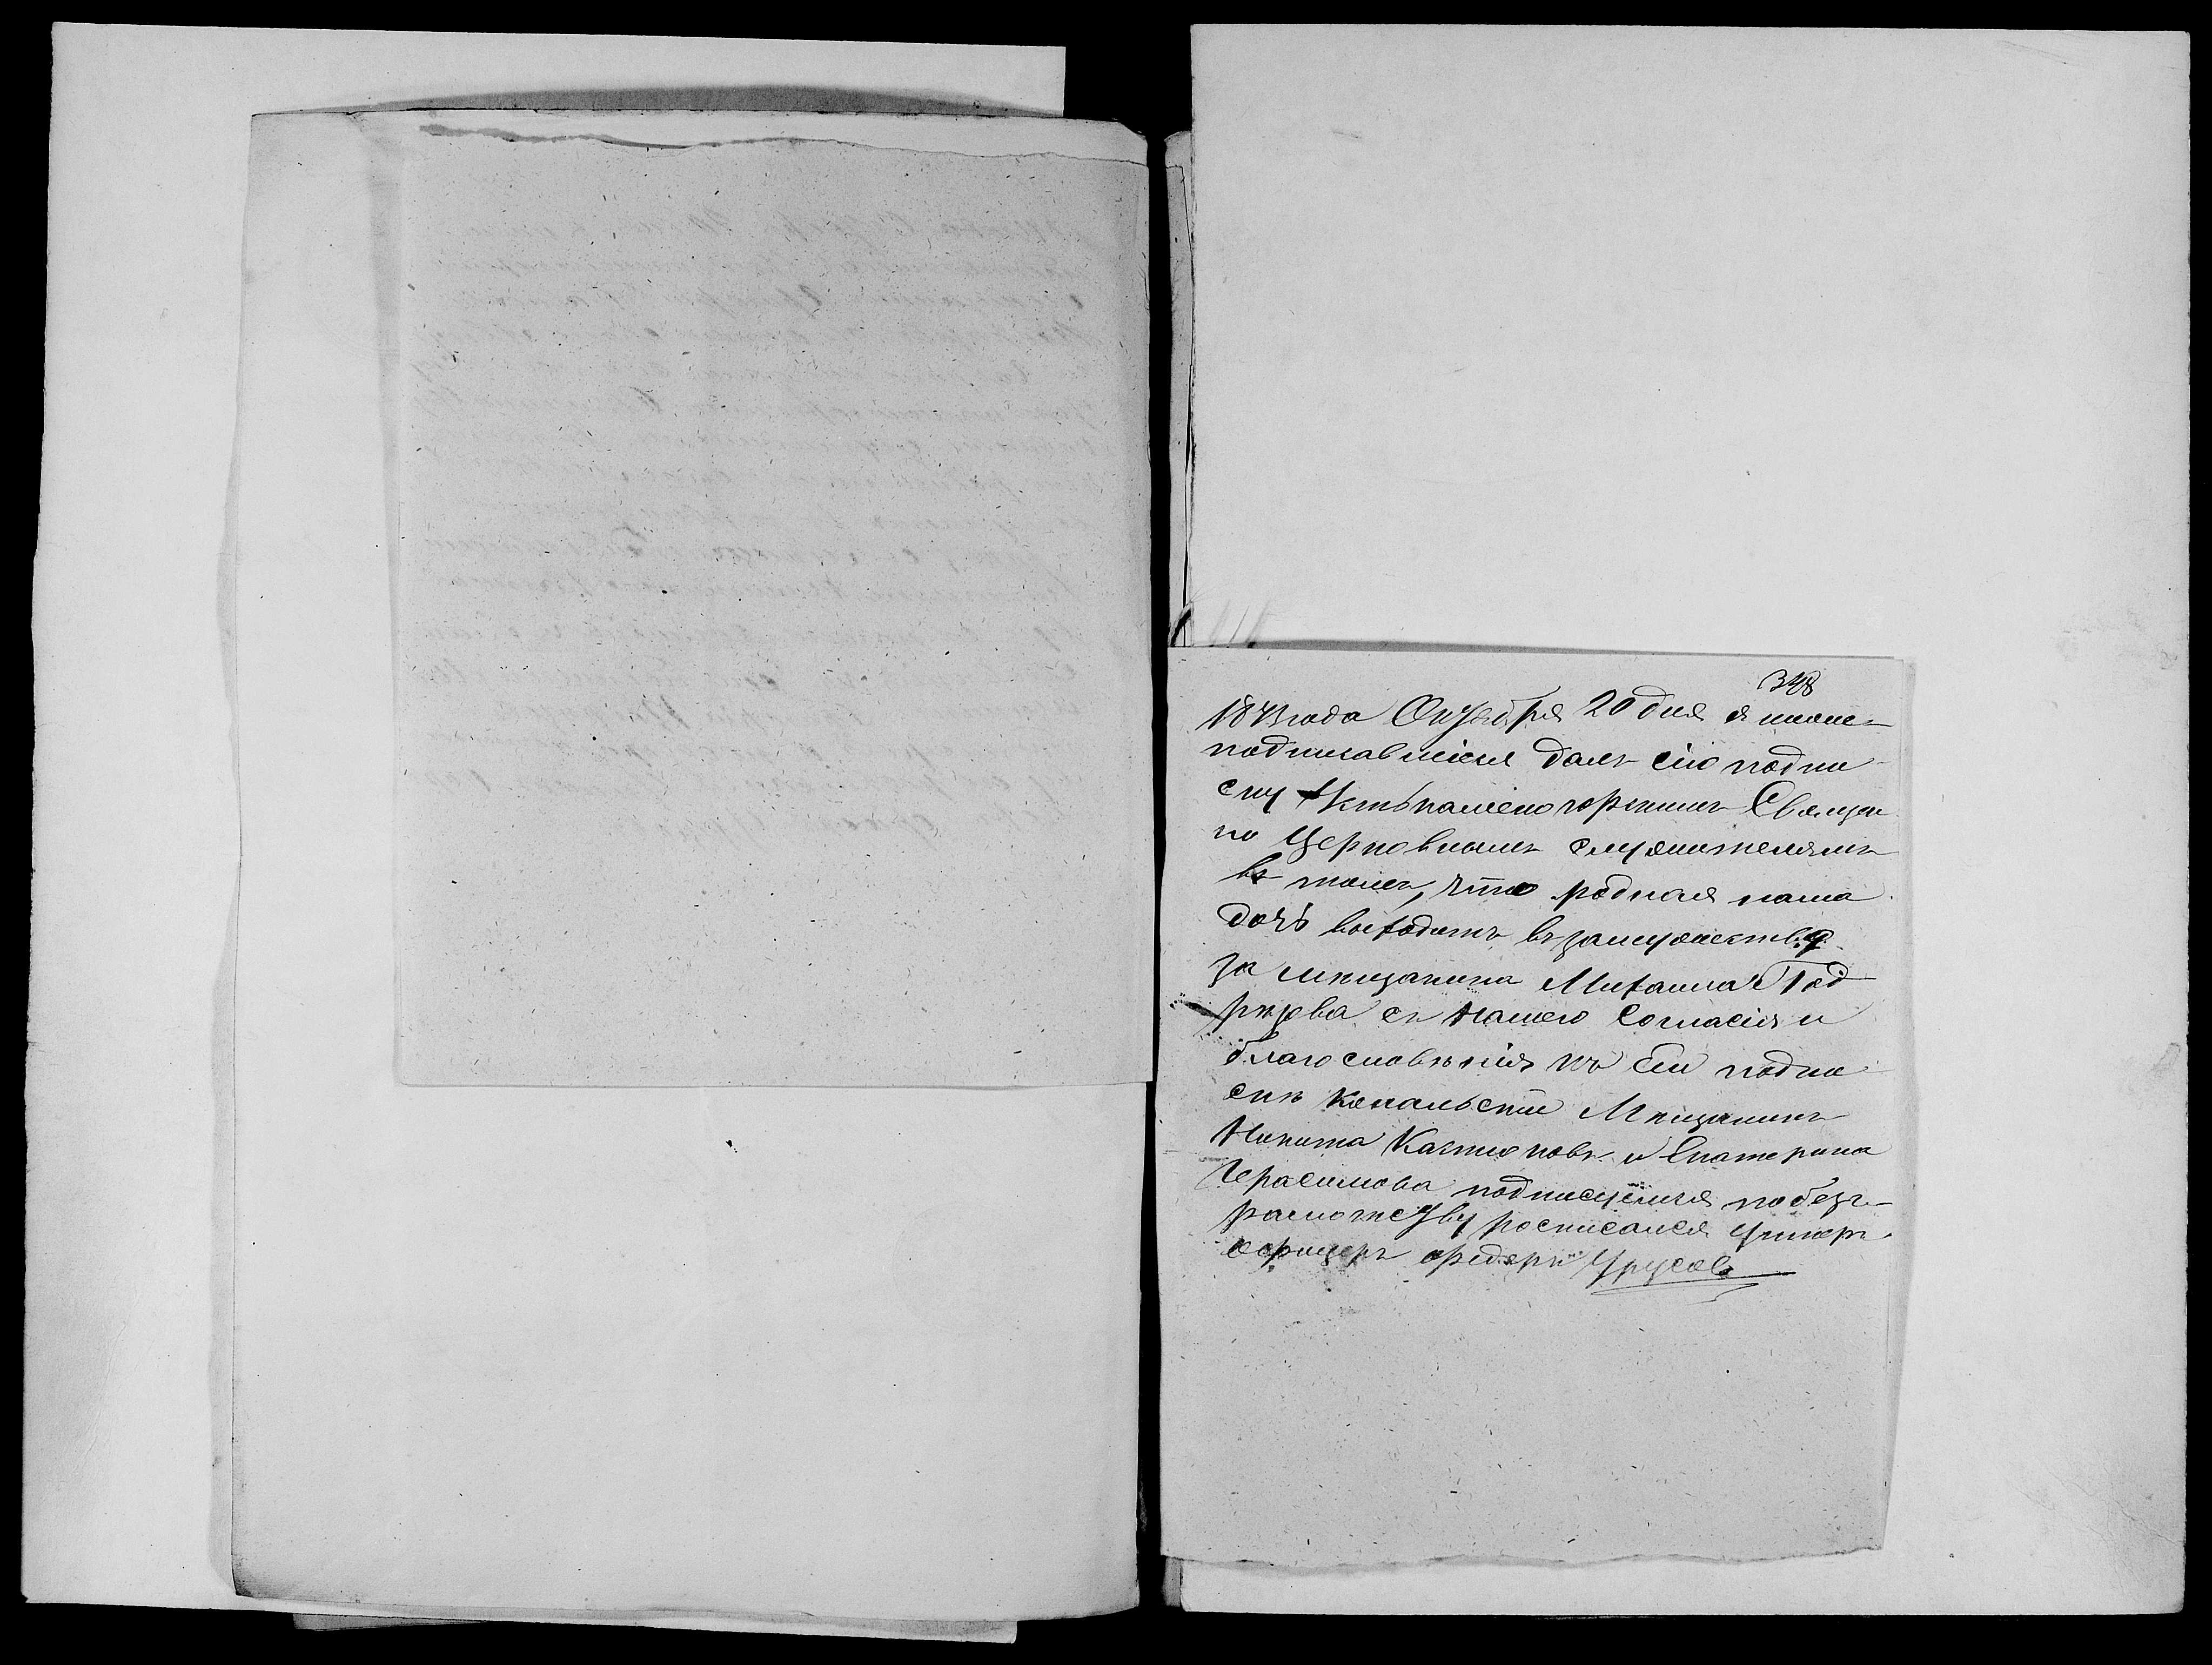 348
1871 года Октября 20 дня я ниже-
подписавшiися далъ сiю подпи
ску Усть каменогорскимъ Священ
но Церковнымъ служителямъ
въ томъ, что родная наша
дочь выходитъ въ замужество
за мещанина Михаила Под
рѣзова съ нашего Согласiя и
благословѣнiя къ Сiи подпи
скѣ Мещанинъ
Никита и Екатерина
Герасимова подписуемся по безг-
рамотству росписался Унтеръ
офицеръ Федоръ Урусовъ